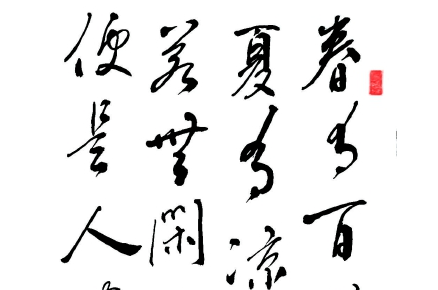 春有百
夏有涼
若無閑
便是人